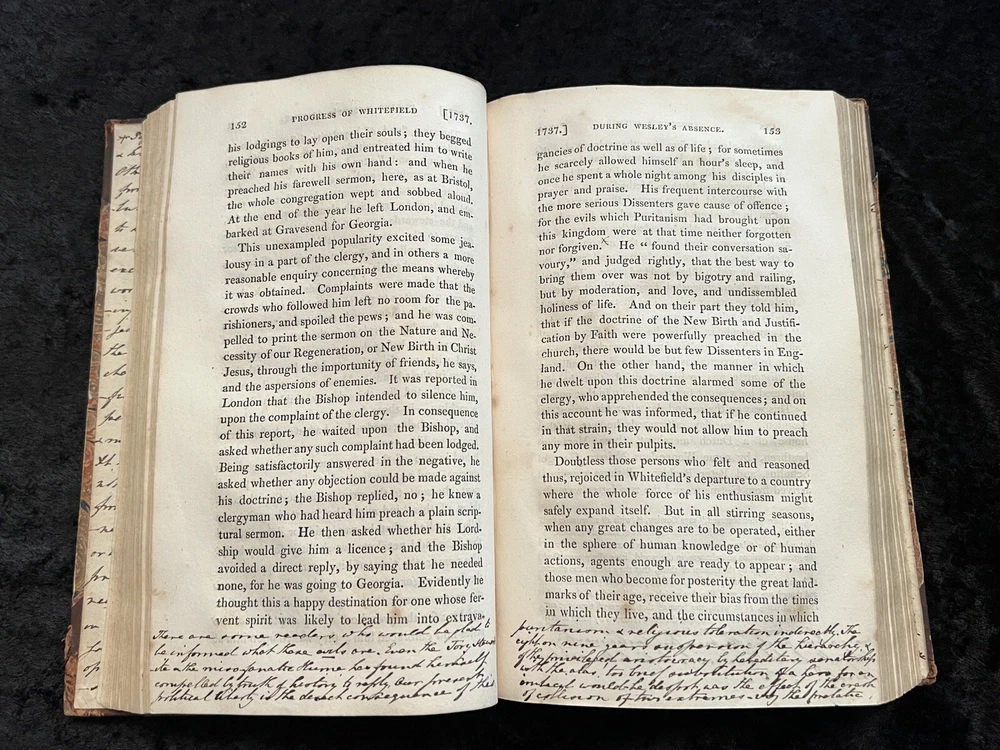 152 PROGRESS OF WHITEFIELD [1737.
his lodgings to lay open their souls; they begged
religious books of him, and entreated him to write
their names with his own hand: and when he
preached his farewell sermon, here, as at Bristol,
the whole congregation wept and sobbed aloud.
At the end of the year he left London, and em-
barked at Gravesend for Georgia.
This unexampled popularity excited some jea-
lousy in a part of the clergy, and in others a more
reasonable enquiry concerning the means whereby
it was obtained. Complaints were made that the
crowds who followed him left no room for the pa-
rishioners, and spoiled the pews; and he was com-
pelled to print the sermon on the Nature and Ne-
cessity of our Regeneration, or New Birth in Christ
Jesus, through the importunity of friends, he says,
and the aspersions of enemies. It was reported in
London that the Bishop intended to silence him,
upon the complaint of the clergy. In consequence
of this report, he waited upon the Bishop, and
asked whether any such complaint had been lodged.
Being satisfactorily answered in the negative, he
asked whether any objection could be made against
his doctrine; the Bishop replied, no; he knew a
clergyman who had heard him preach a plain scrip-
tural sermon. He then asked whether his Lord-
ship would give him a licence; and the Bishop
avoided a direct reply, by saying that he needed
none, for he was going to Georgia. Evidently he
thought this a happy destination for one whose fer-
vent spirit was likely to lead him into extrava-
There are some readers, who would be glad to
be informed what these evils are. Even the Tory
Hume has found himself
compelled by truth of history to reply, Our present
political liberty is the consequence of
1737.] DURING WESLEY'S ABSENCE. 153
gancies of doctrine as well as of life; for sometimes
he scarcely allowed himself an hour's sleep, and
once he spent a whole night among his disciples in
prayer and praise. His frequent intercourse with
the more serious Dissenters gave cause of offence;
for the evils which Puritanism had brought upon
this kingdom were at that time neither forgotten
nor forgiven.x He "found their conversation sa-
voury," and judged rightly, that the best way to
bring them over was not by bigotry and railing,
but by moderation, and love, and undissembled
holiness of life. And on their part they told him,
that if the doctrine of the New Birth and Justifi-
cation by Faith were powerfully preached in the
church, there would be but few Dissenters in Eng-
land. On the other hand, the manner in which
he dwelt upon this doctrine alarmed some of the
clergy, who apprehended the consequences; and on
this account he was informed, that if he continued
in that strain, they would not allow him to preach
any more in their pulpits.
Doubtless those persons who felt and reasoned
thus, rejoiced in Whitefield's departure to a country
where the whole force of his enthusiasm might
safely expand itself. But in all stirring seasons,
when any great changes are to be operated, either
in the sphere of human knowledge or of human
actions, agents enough are ready to appear; and
those men who become for posterity the great land-
marks of their age, receive their bias from the times
in which they live, and the circumstances in which
puritanism & religious toleration indirectly. The
eight or nine years suspension of the hierarchy, &
of the aristocracy by hereditary
with the alas. too brief substitution of a hero for an
would be despot, was the effect of the
of collision of two extremes